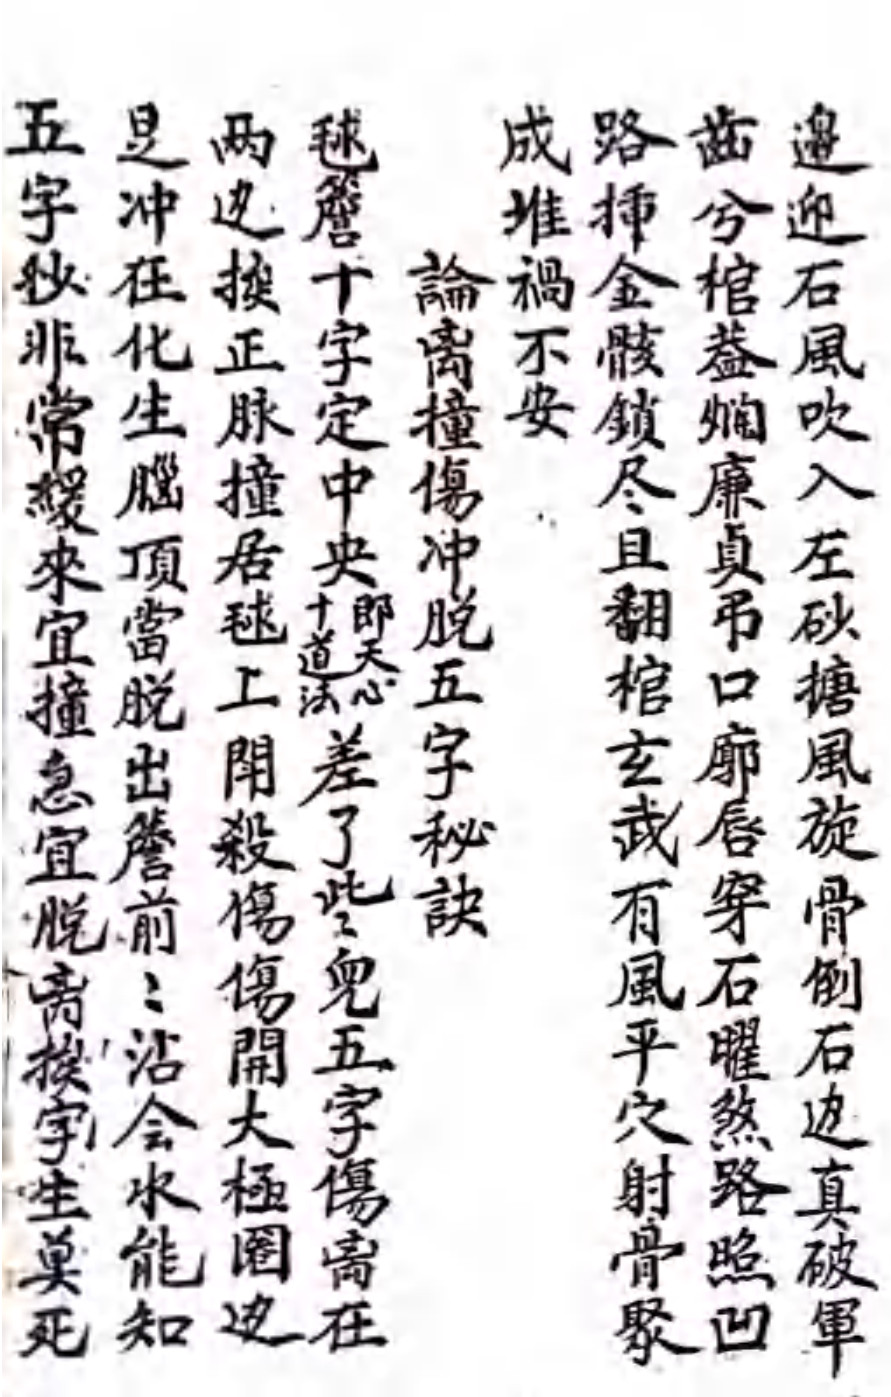 邉迎石風吹入左砂搪風旋骨倒石边真破軍
齒兮棺蓋爛廉貞吊口廓唇穿石曜煞路照凹
路揷金骸鎖尽〻且翻棺玄武有風平穴射骨聚
成堆禍不安
論离撞傷冲脱五字秘訣
毬簷十字定中央即天心十道法差了些〻兒五字傷离在
两边挨正脉撞居毬上閗殺傷傷開大極圈边
是冲在化生腦頂當脱出簷前〻沾会水能知
五字妙非常緩來宜撞急宜脱离挨字生莫死